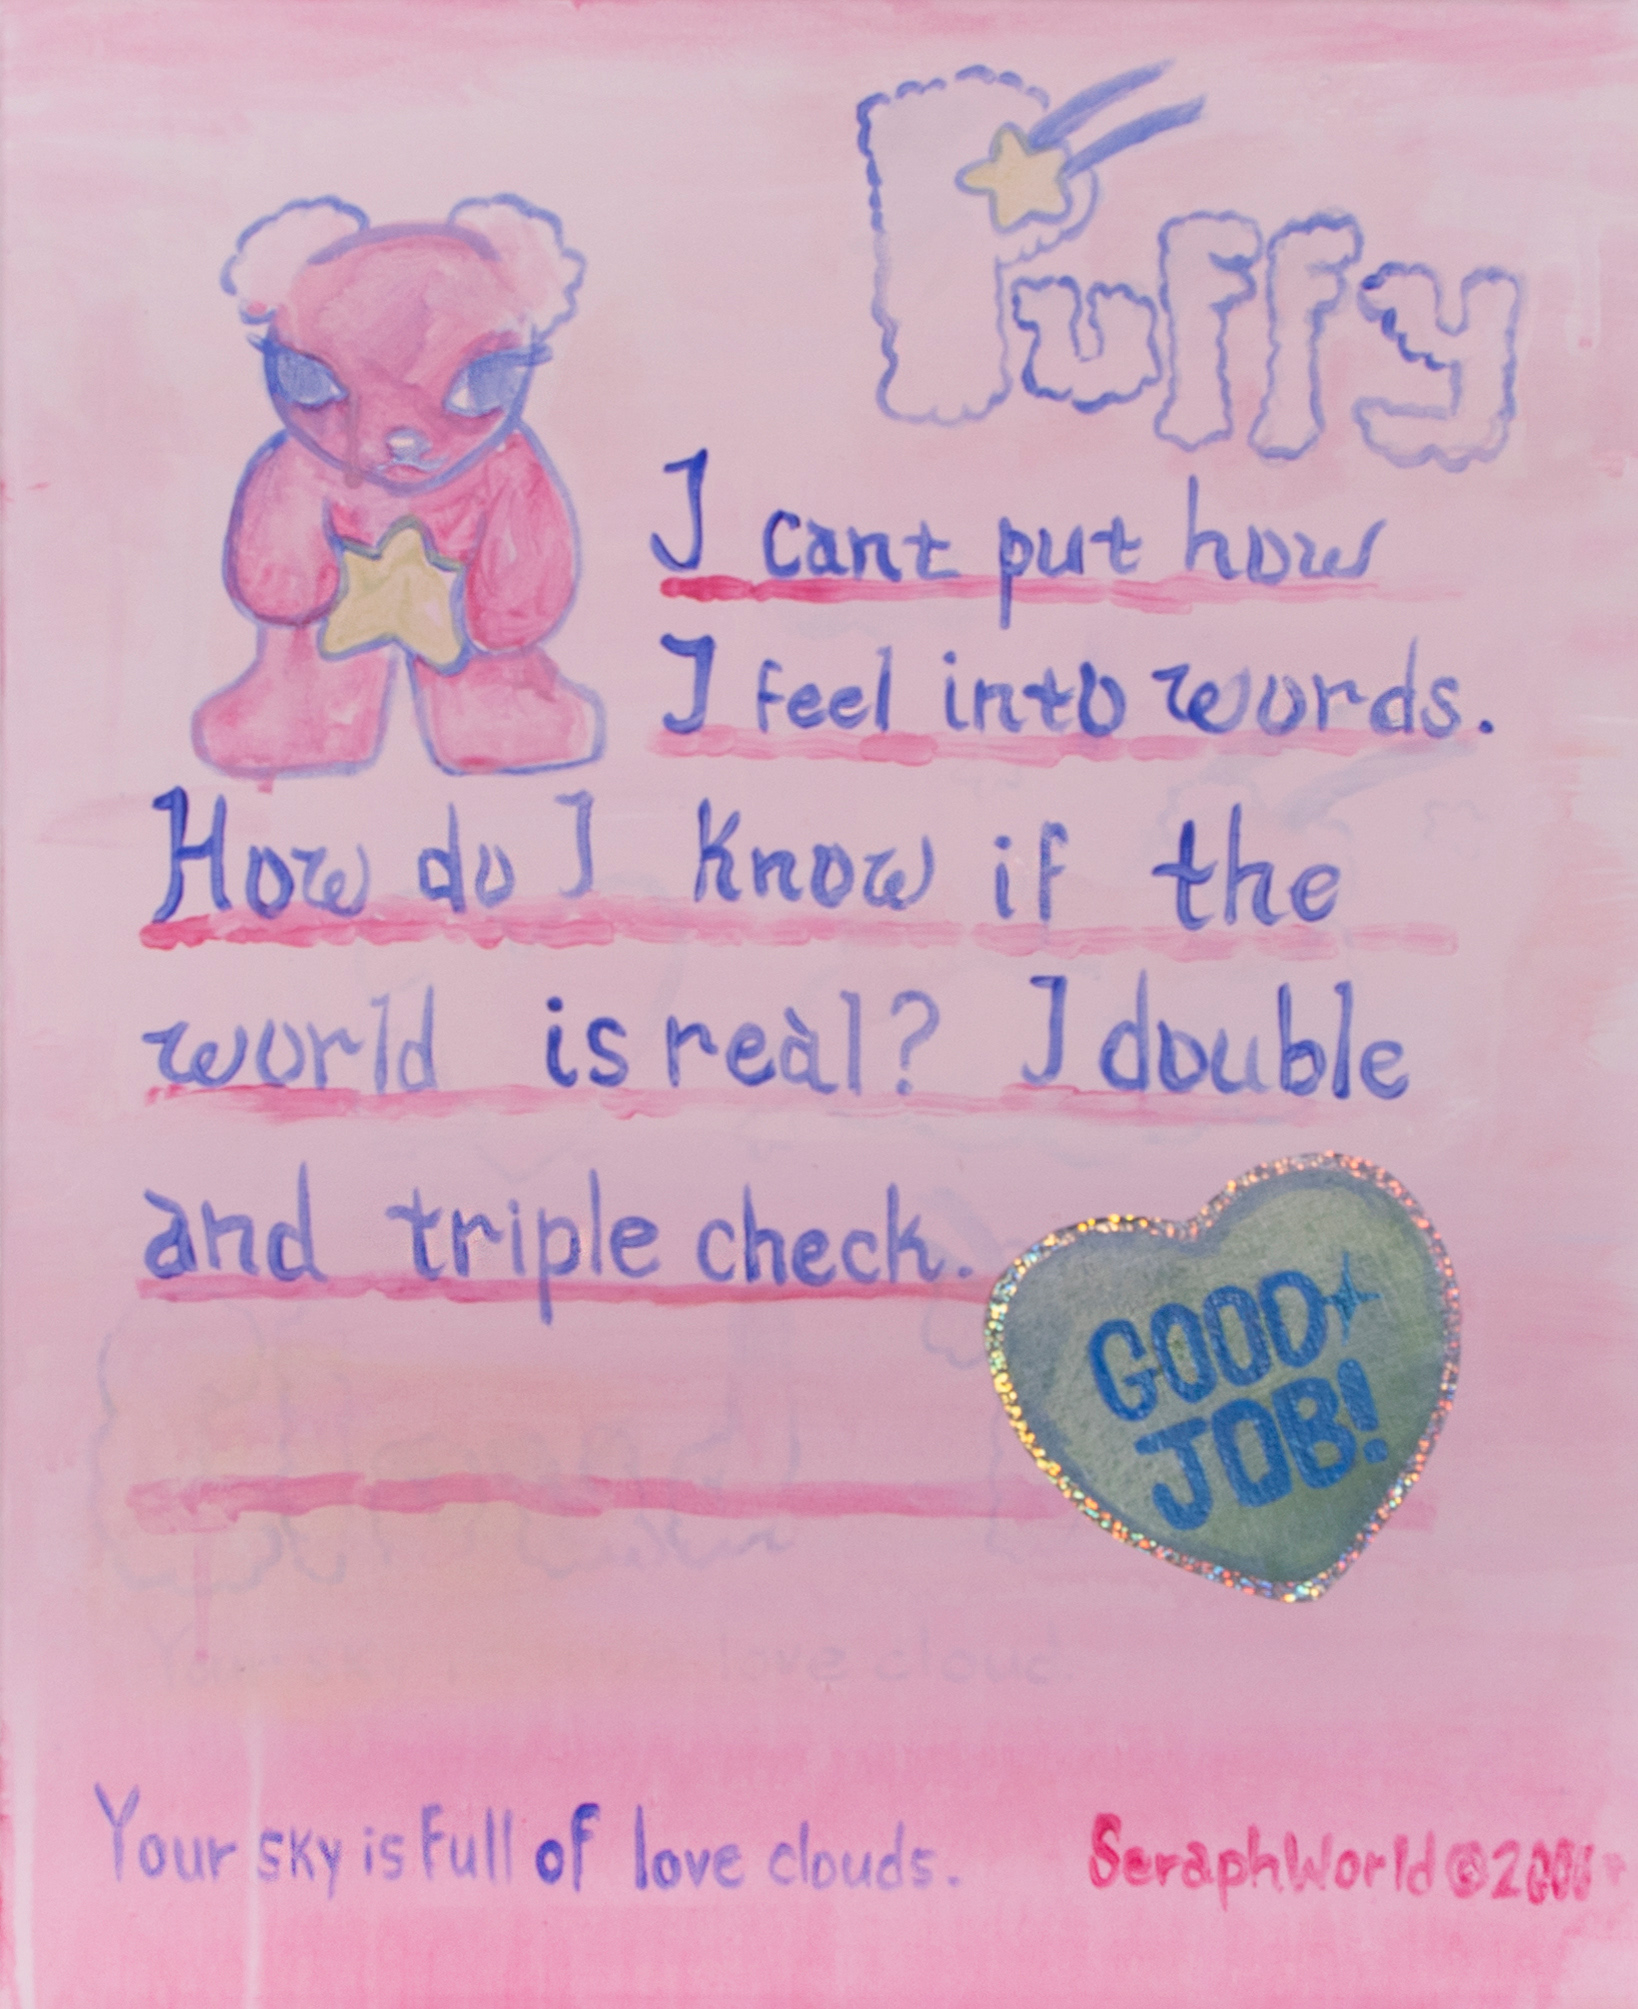 Puffy
I cant put how
I feel into words.
How do I know if the
world is real? I double
and triple check.
GOOD
JOB!
love cloud
Your sky is full of love clouds.
SeraphWorld ©